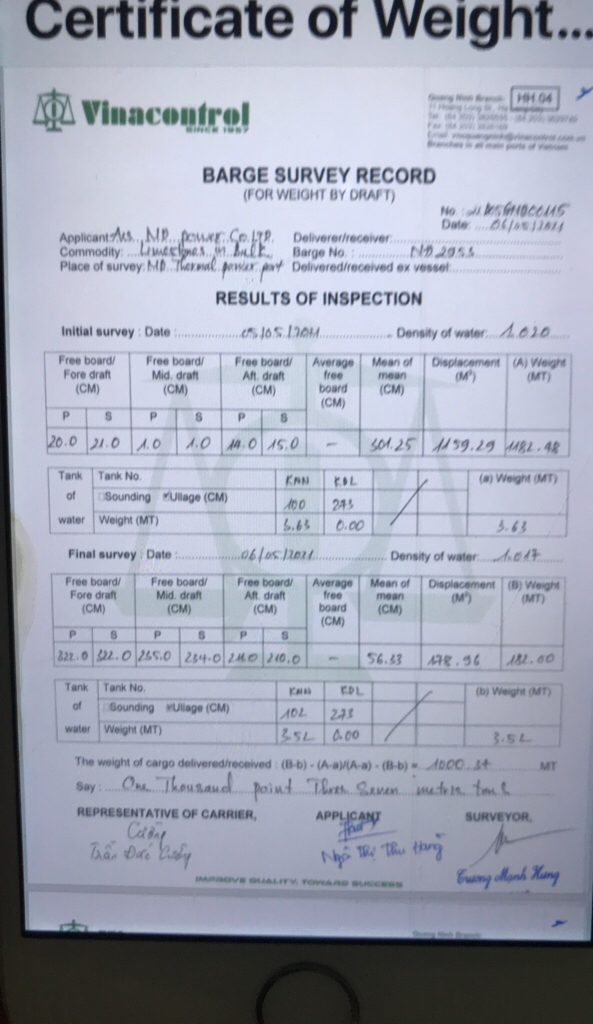 Certificate of Weight...
Vinacontrol
SINCE 1957
HH.04
Quang Ninh Branch:
Branches in all main ports of Vietnam
BARGE SURVEY RECORD
(FOR WEIGHT BY DRAFT)
No.:
Date: 06/05/2021
Applicant: MD power Co. LTD. Deliverer/receiver:
Commodity: Limestones in Bulk Barge No.: ND 2953
Place of survey: MD Thermal power port Delivered/received ex vessel:
RESULTS OF INSPECTION
Initial survey : Date : 05/05/2021 Density of water: 1.020
Free board/ Fore draft (CM) Free board/ Mid. draft (CM) Free board/ Aft. draft (CM) Average free board (CM) Mean of mean (CM) Displacement (M³) (A) Weight (MT)
P S P S P S
20.0 21.0 1.0 1.0 14.0 15.0 - 301.25 1159.29 1182.48
Tank of water Tank No. KNN KDL (a) Weight (MT)
Sounding Ullage (CM) 100 273
Weight (MT) 3.63 0.00 3.63
Final survey : Date : 06/05/2021 Density of water: 1.017
Free board/ Fore draft (CM) Free board/ Mid. draft (CM) Free board/ Aft. draft (CM) Average free board (CM) Mean of mean (CM) Displacement (M³) (B) Weight (MT)
P S P S P S
322.0 322.0 235.0 234.0 210.0 - 56.33 178.96 182.00
Tank of water Tank No. KNN KDL (b) Weight (MT)
Sounding Ullage (CM) 102 273
Weight (MT) 3.52 0.00 3.52
The weight of cargo delivered/received : (B-b) - (A-a)/(A-a) - (B-b) = 1000.37 MT
Say : One Thousand point Three Seven metric tons
REPRESENTATIVE OF CARRIER, APPLICANT SURVEYOR,
Trần Đức Ngô Thị Thu Hằng Trương Mạnh Hùng
IMPROVE QUALITY, TOWARD SUCCESS